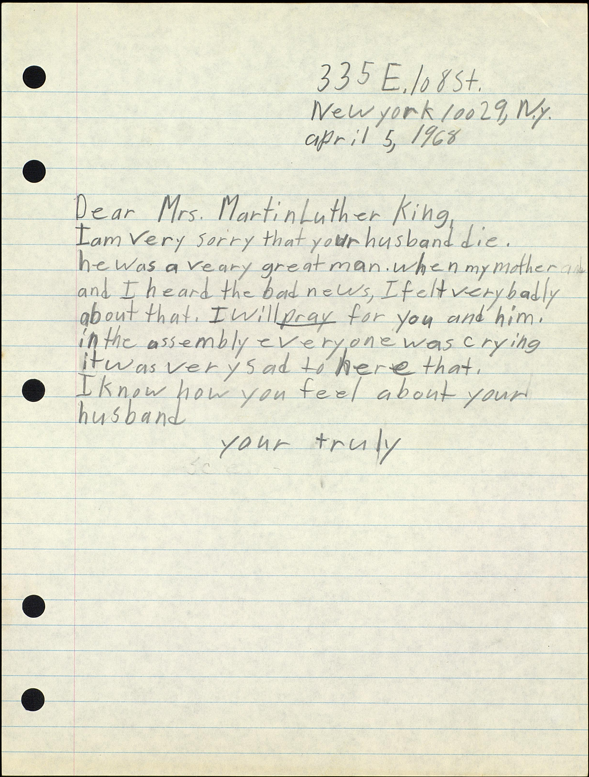 335 E. 108 St.
New york 10029, N.y.
april 5, 1968
Dear Mrs. Martin Luther King,
I am very sorry that your husband die.
he was a veary great man. when my mother
and I heard the bad news, I felt very badly
about that. I will pray for you and him.
in the assembly everyone was crying
it was very sad to here that.
I know how you feel about your
husband
your truly